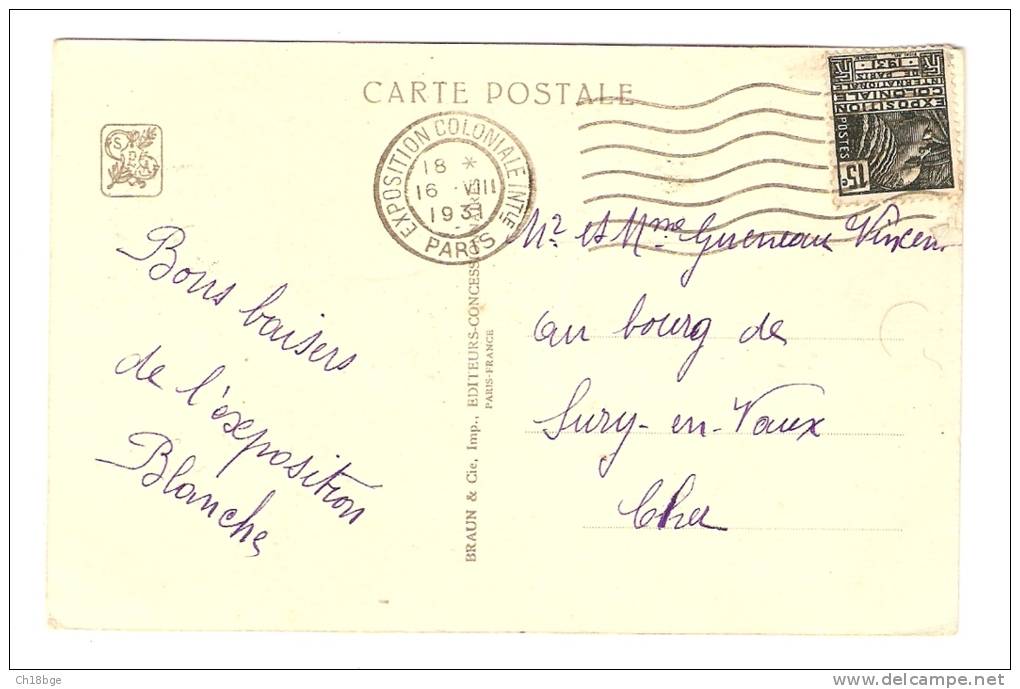 CARTE POSTALE
EXPOSITION COLONIALE INTLE
18 *
16 VIII
1931
PARIS
EXPOSITION
COLONIALE
INTERNATIONALE
DE PARIS
1931
POSTES
15c
Bons baisers
de l'exposition
Blanche
BRAUN & Cie, Imp., EDITEURS-CONCESS
PARIS-FRANCE
Mr et Mme Gueneau Vincent
au bourg de
Sury-en-Vaux
Cher
Ch18bge
www.delcampe.net